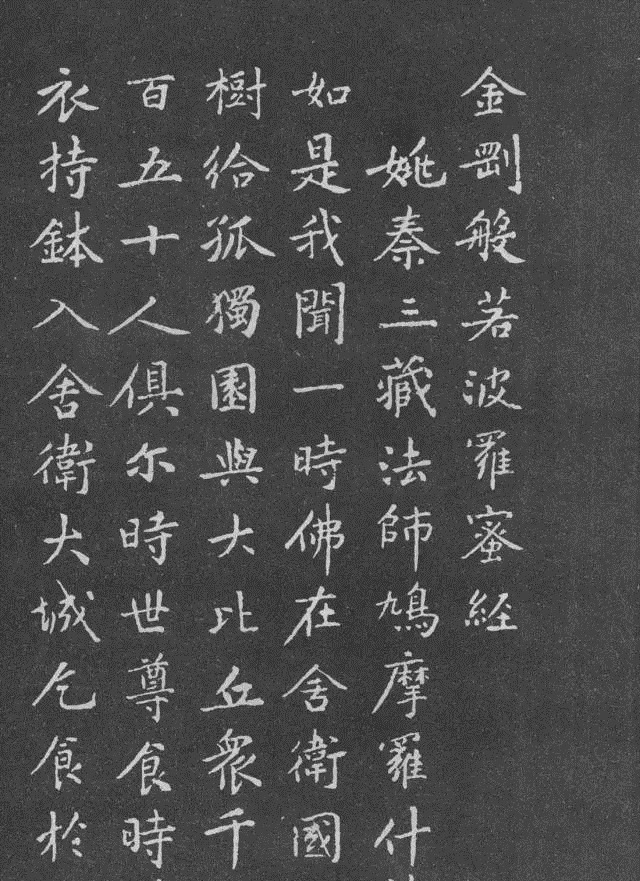 金剛般若波羅蜜經
姚秦三藏法師鳩摩羅什
如是我聞一時佛在舍衛國
樹給孤獨園與大比丘衆千
百五十人俱尒時世尊食時
衣持鉢入舍衛大城乞食於